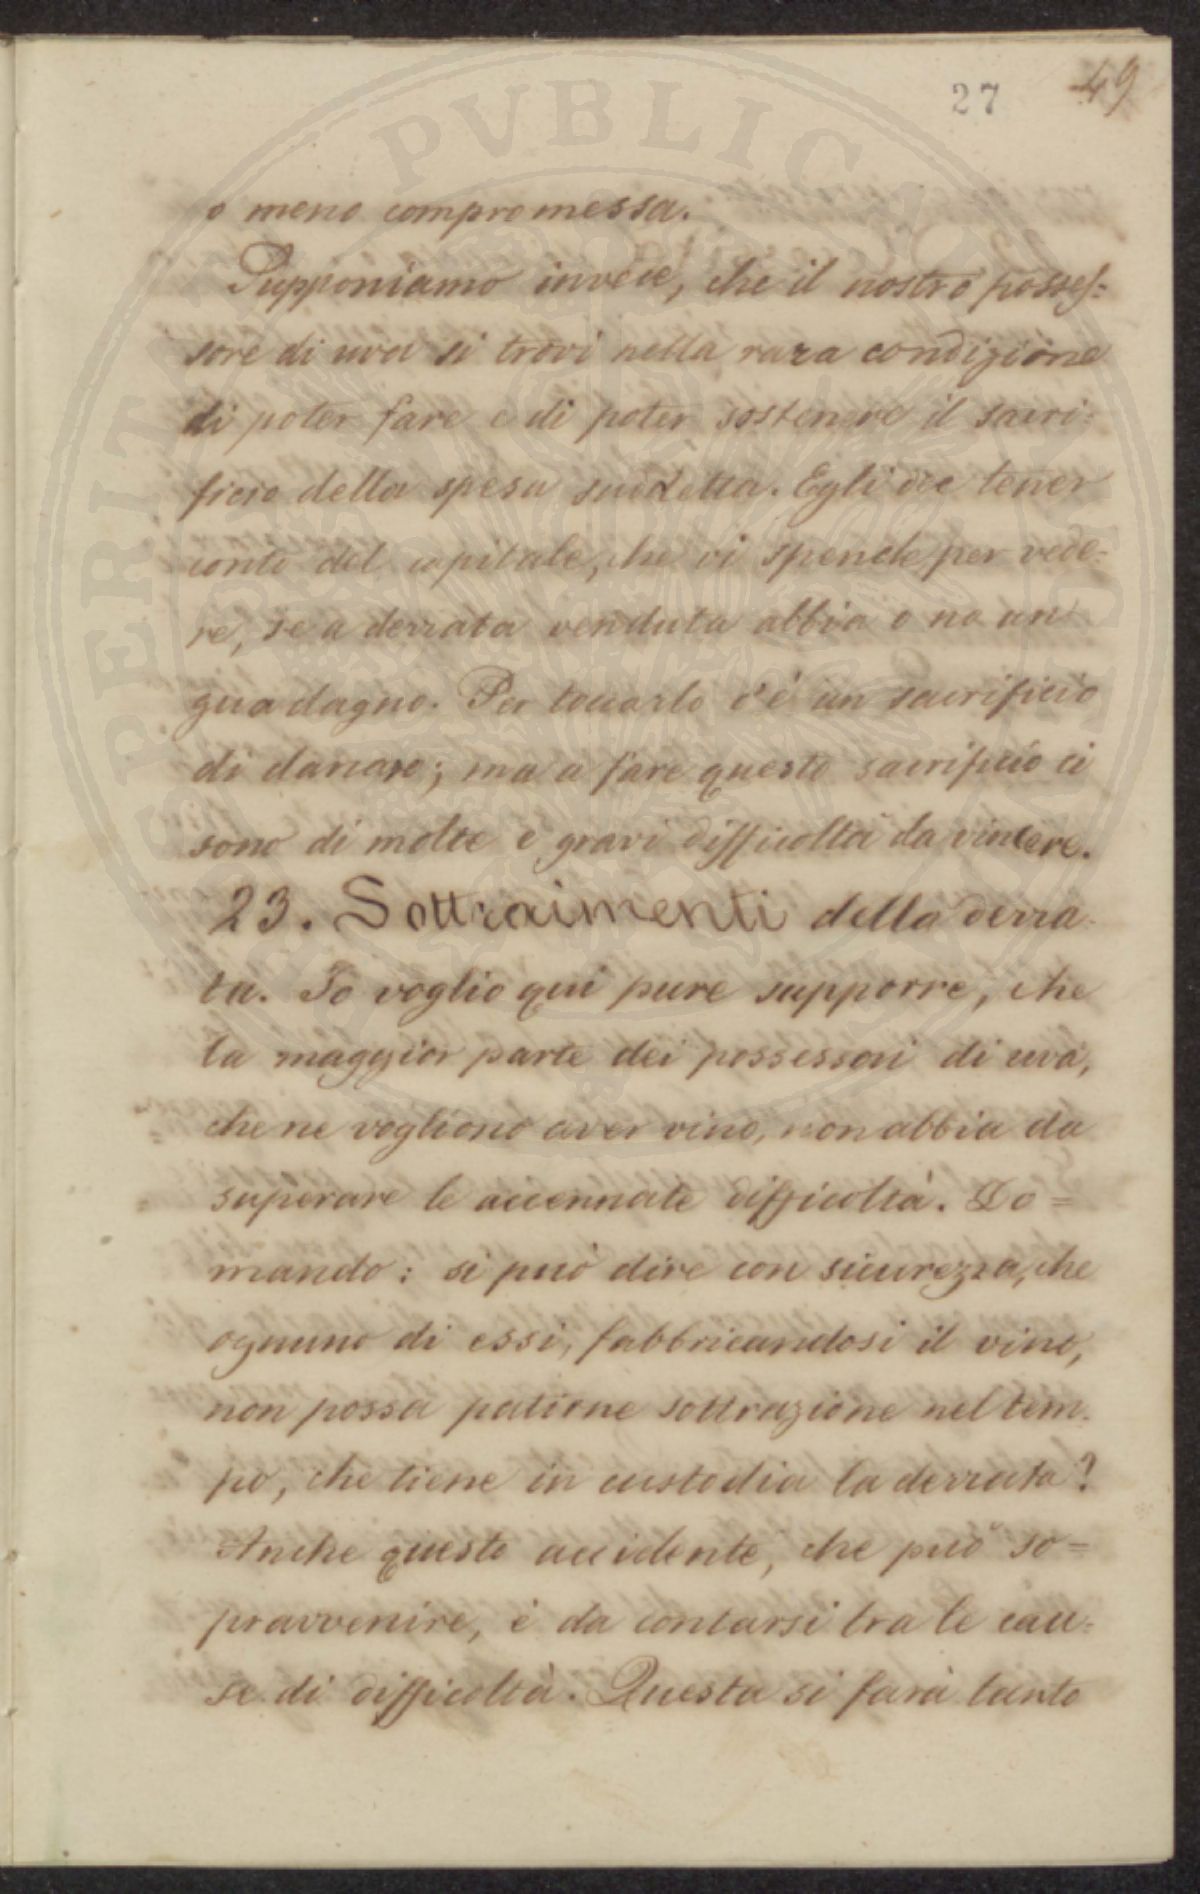 27 49
o meno compromessa.
Supponiamo invece, che il nostro posses-
sore di uva si trovi nella rara condizione
di poter fare e di poter sostenere il sacri-
ficio della spesa suddetta. Egli dee tener
conto del capitale, che vi spende per vede-
re, se a derrata venduta abbia o no un
guadagno. Per toccarlo c'è un sacrificio
di danaro; ma a fare questo sacrificio ci
sono di molte e gravi difficoltà da vincere.
23. Sottraimenti della derra-
ta. Io voglio qui pure supporre, che
la maggior parte dei possessori di uva,
che ne vogliono aver vino, non abbia da
superare le accennate difficoltà. Do=
mando: si può dire con sicurezza, che
ognuno di essi, fabbricandosi il vino,
non possa patirne sottrazione nel tem-
po, che tiene in custodia la derrata?
Anche questo accidente, che può so=
pravvenire, è da contarsi tra le cau-
se di difficoltà. Questa si farà tanto